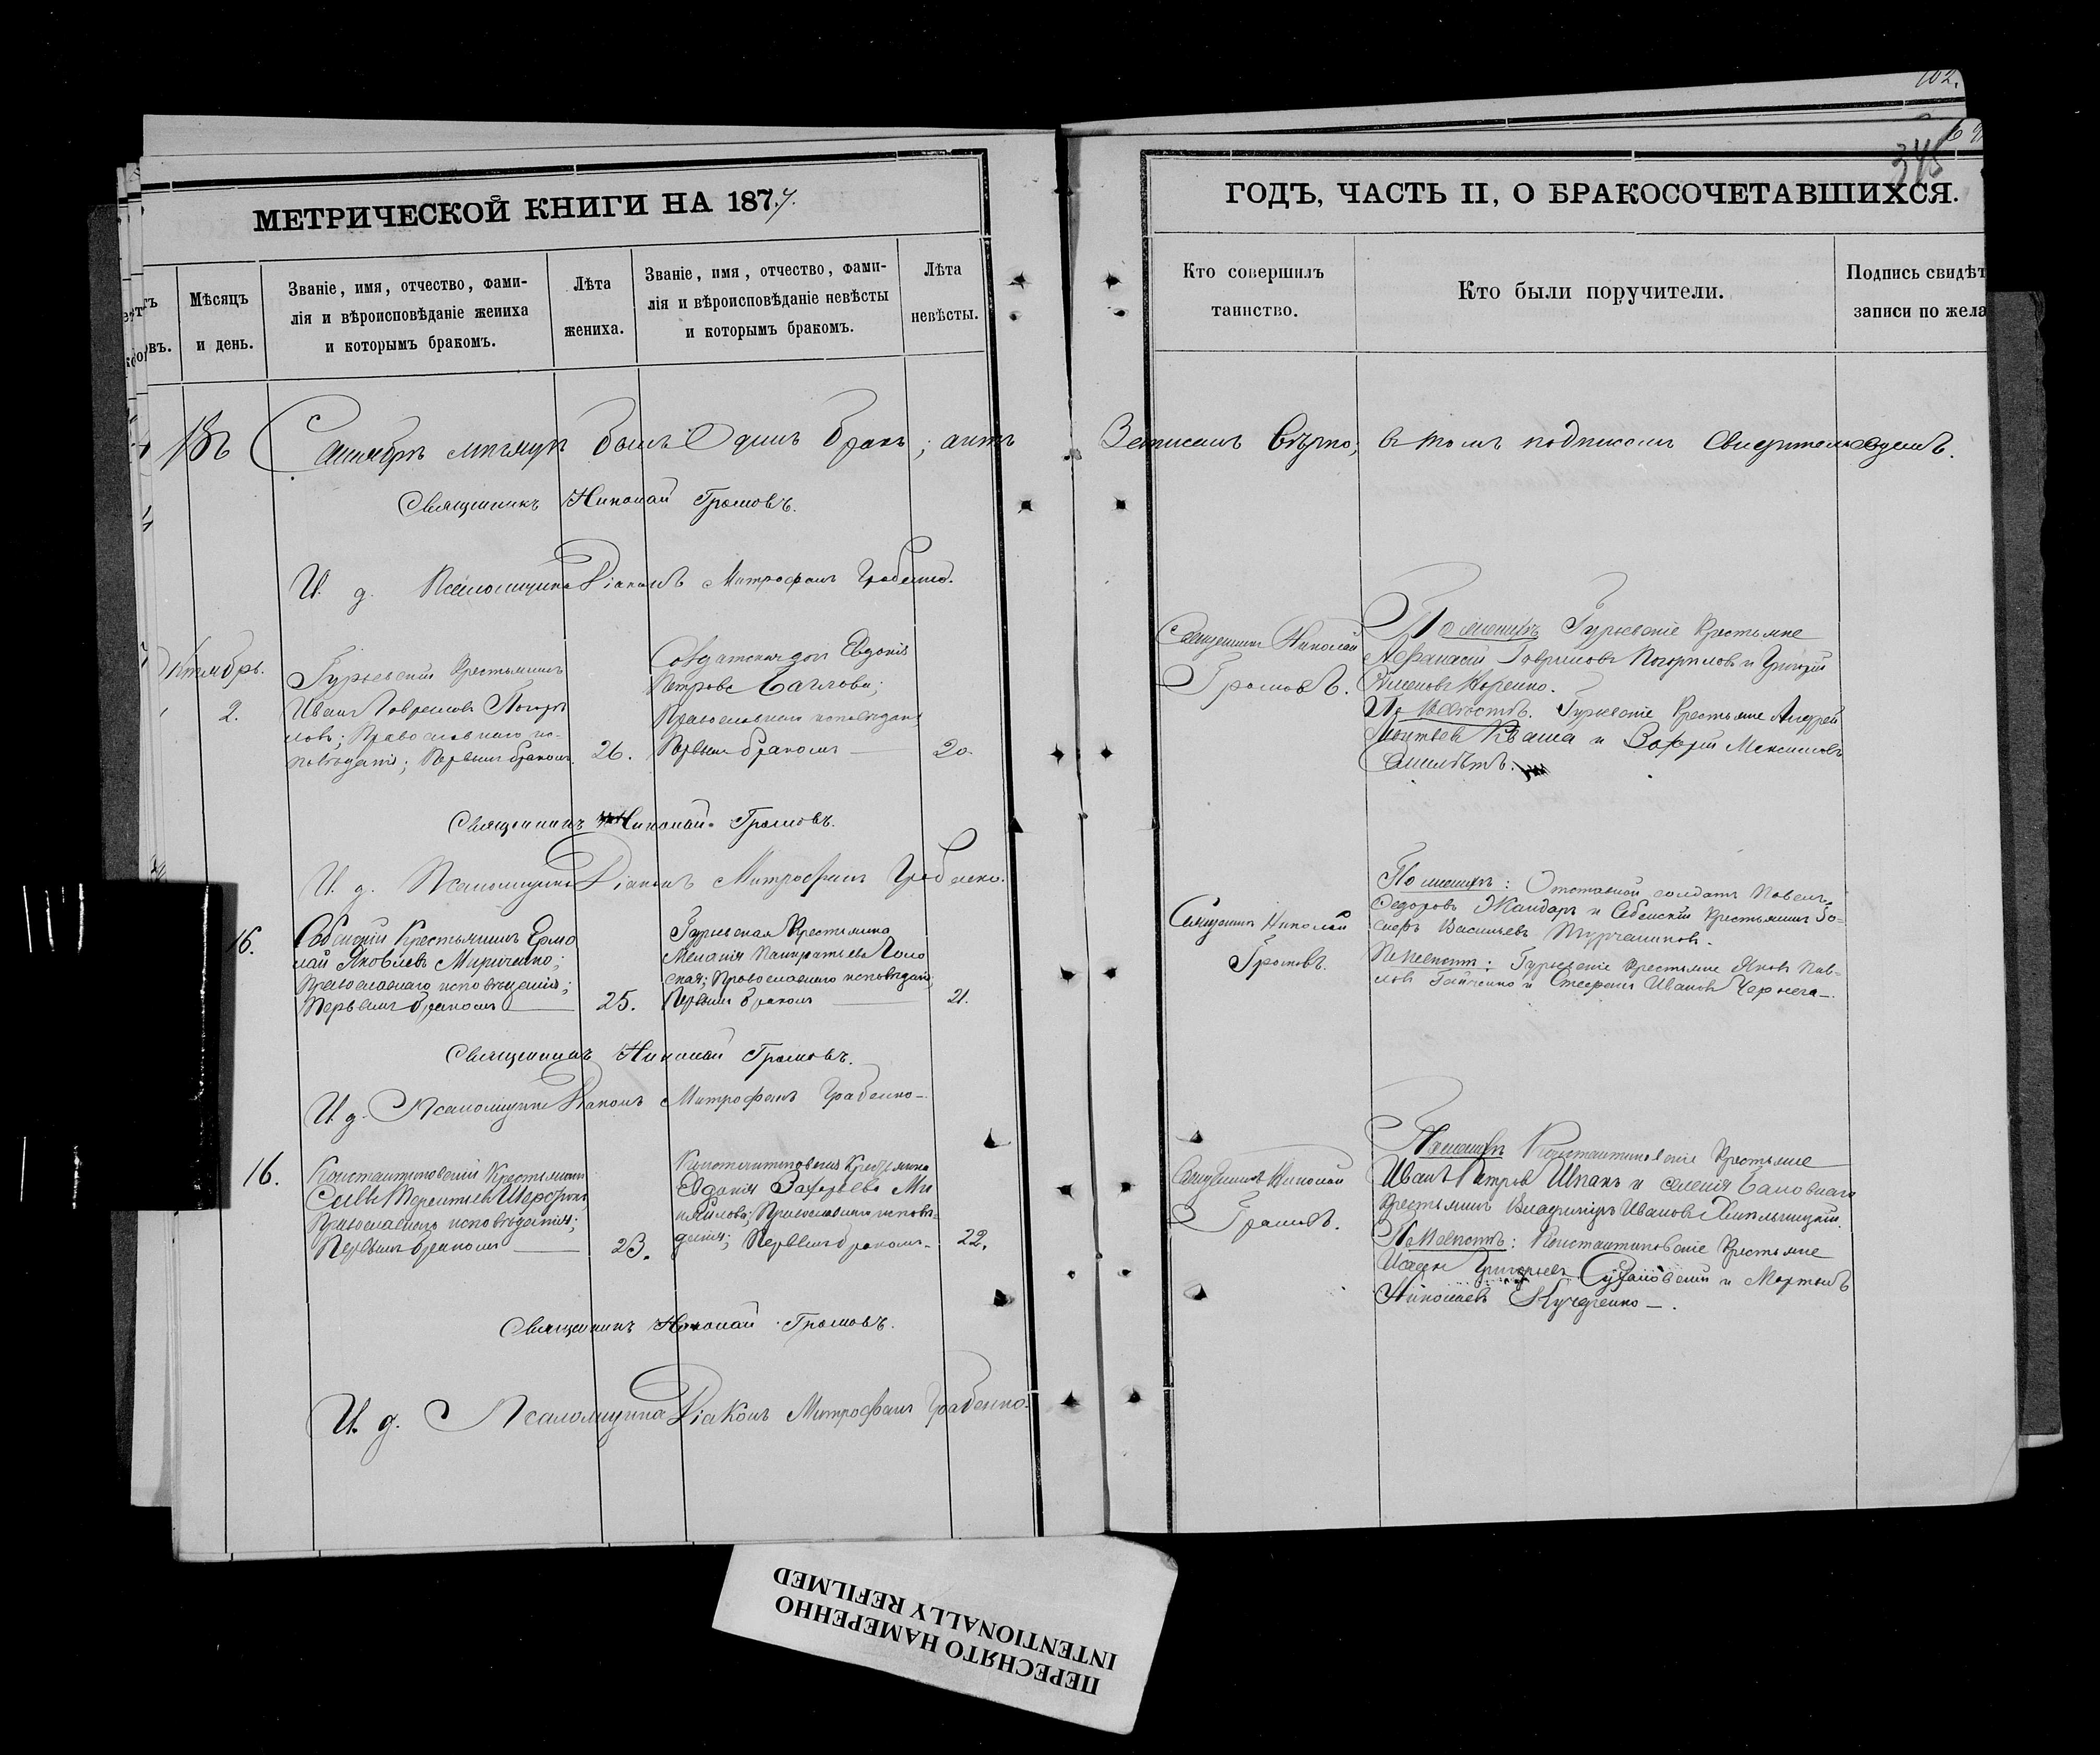 102.
345
МЕТРИЧЕСКОЙ КНИГИ НА 1877.
ГОДЪ, ЧАСТЬ II, О БРАКОСОЧЕТАВШИХСЯ.
Мѣсяцъ
и день.
Званіе, имя, отчество, фами-
лія и вѣроисповѣданіе жениха
и которымъ бракомъ.
Лѣта
жениха.
Званіе, имя, отчество, фами-
лія и вѣроисповѣданіе невѣсты
и которымъ бракомъ.
Лѣта
невѣсты.
Кто совершилъ
таинство.
Кто были поручители.
Подпись свидѣт
записи по жела
Въ Сентябрѣ мѣсяцѣ былъ Одинъ бракъ; актъ Записанъ вѣрно; въ томъ подписомъ Свидѣтельствуемъ.
Священникъ Николай Громовъ.
И. д. Псаломщика Діаконъ Митрофанъ Грабенко.
Октябрь.
2.
Гурьевскій Крестьянинъ
Иванъ Гавриловъ Погорѣ
ловъ; Православнаго ис-
повѣданія; Первымъ бракомъ.
26.
Солдатская дочь Евдокія
Петрова
Православнаго исповѣданія
Первымъ бракомъ —
20.
Священникъ Николай
Громовъ.
По женихѣ Гурьевскіе Крестьяне
Афанасій Гавриловъ Погорѣловъ и Григорій
Норенко.
По Невѣстѣ. Гурьевскіе Крестьяне Андрей
Кваша и Захарій Максимовъ
Священникъ Николай Громовъ.
И. д. Псаломщика Діаконъ Митрофанъ Грабенко.
16.
Крестьянинъ Ермо
лай Яковлевъ Мириченко;
Православнаго исповѣданія;
Первымъ бракомъ —
25.
Гурьевская Крестьянка
Меланія Панкратьева
Православнаго исповѣданія;
Первымъ бракомъ
21.
Священникъ Николай
Громовъ.
По женихѣ: Отставной солдатъ Павелъ
Федоровъ Жандаръ и Крестьянинъ Іо-
сифъ Васильевъ
По Невѣстѣ: Гурьевскіе Крестьяне Яковъ Пав-
ловъ и Стефанъ Ивановъ Чернега —.
Священникъ Николай Громовъ.
И. д. Псаломщика Діаконъ Митрофанъ Грабенко —
16.
Константиновскій Крестьянинъ
Савва Терентьевъ
Православнаго исповѣданія;
Первымъ бракомъ —
23.
Константиновская Крестьянка
Евдокія Захарьева Ми
хайлова; Православнаго исповѣ-
данія; Первымъ бракомъ —
22.
Священникъ Николай
Громовъ.
По женихѣ Константиновскіе Крестьяне
Иванъ Петровъ Шпакъ и селенія Баловнаго
Крестьянинъ Владиміръ Ивановъ Хмельницкій.
По Невѣстѣ: Константиновскіе Крестьяне
Исаакъ Григорьевъ и Мартынъ
Николаевъ Кучеренко —.
Священникъ Николай Громовъ.
И. д. Псаломщика Діаконъ Митрофанъ Грабенко.
ПЕРЕСНЯТО НАМЕРЕННО
INTENTIONALLY REFILMED